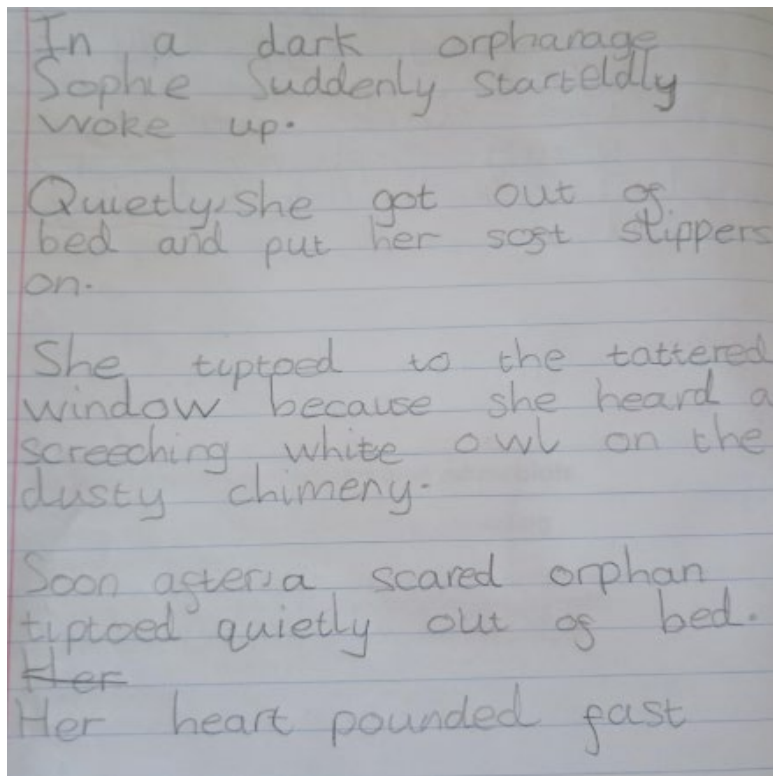 In a dark orphanage
Sophie Suddenly starteldly
woke up.
Quietly, she got out of
bed and put her soft slippers
on.
She tiptoed to the tattered
window because she heard a
screeching white owl on the
dusty chimeny.
Soon after, a scared orphan
tiptoed quietly out of bed.
Her
Her heart pounded fast